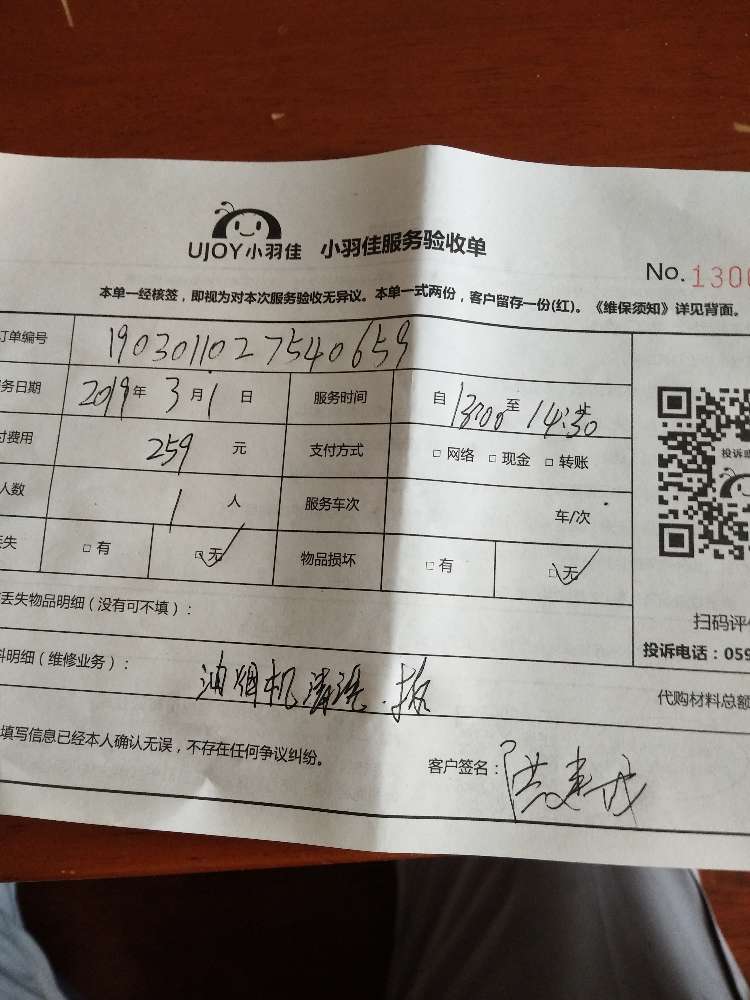 UJOY小羽佳 小羽佳服务验收单
No. 1300
本单一经核签，即视为对本次服务验收无异议。本单一式两份，客户留存一份(红)。《维保须知》详见背面。
订单编号 1903011027540659
务日期 2019年 3月1日 服务时间 自 13:00 至 14:30 止
付费用 259 元 支付方式 □网络 □现金 □转账
人数 1 人 服务车次 车/次
丢失 □有 □无 物品损坏 □有 □无
投诉
丢失物品明细（没有可不填）：
扫码评价
投诉电话：059
料明细（维修业务）： 油烟机清洗.拆
代购材料总额
填写信息已经本人确认无误，不存在任何争议纠纷。
客户签名：